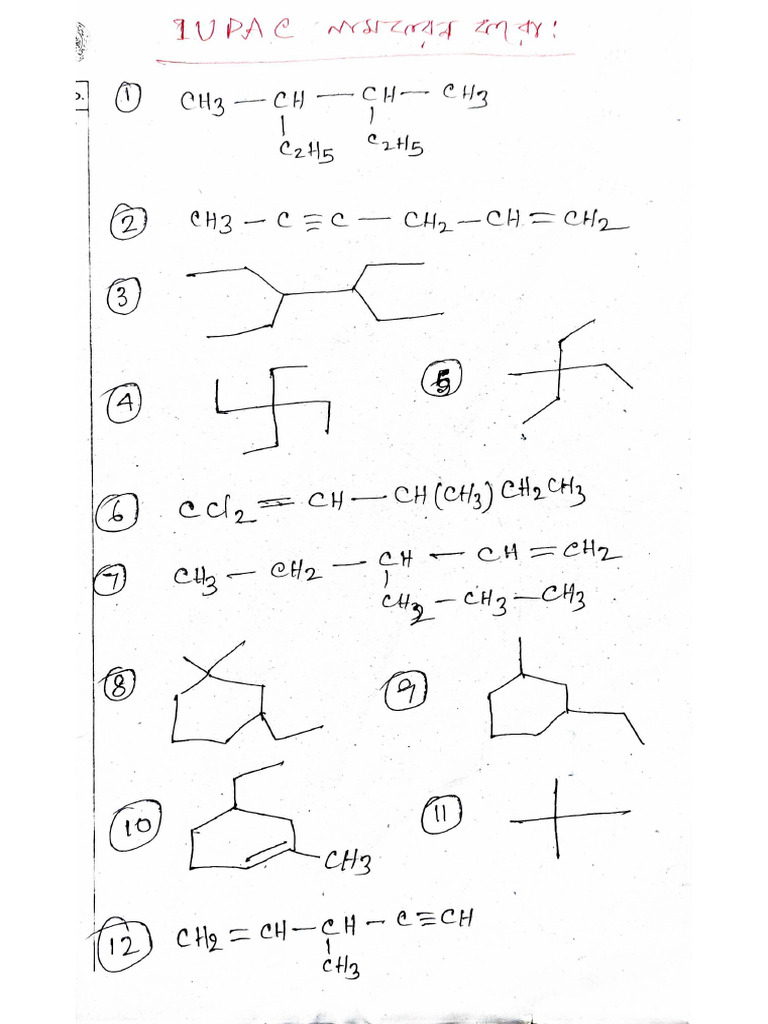 IUPAC নামকরন কর:
১.
① CH3 — CH — CH — CH3
C2H5 C2H5
② CH3 — C ≡ C — CH2 — CH = CH2
③
④ ⑤
⑥ CCl2 = CH — CH(CH3)CH2CH3
⑦ CH3 — CH2 — CH — CH = CH2
CH2 — CH3 — CH3
⑧ ⑨
⑩ ⑪
CH3
⑫ CH2 = CH — CH — C ≡ CH
CH3